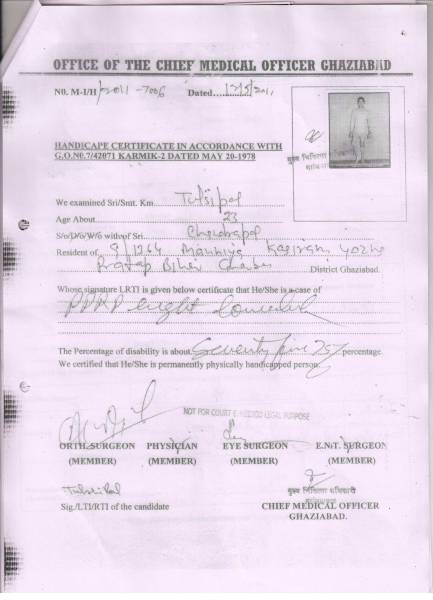 OFFICE OF THE CHIEF MEDICAL OFFICER GHAZIABAD
N0. M-I/H/2011 -7006 Dated....12/5/2011
HANDICAPE CERTIFICATE IN ACCORDANCE WITH
G.O.N0.7/42071 KARMIK-2 DATED MAY 20-1978
मुख्य चिकित्सा
We examined Sri/Smt. Km Tulsi pal
Age About 23
S/o/D/o/W/o with of Sri
Resident of
Pratap Bihar District Ghaziabad.
Whose signature LRTI is given below certify that He/She is a case of
PPRP
The Percentage of disability is about Seventy five 75% percentage.
We certified that He/She is permanently physically handicapped person.
NOT FOR COURT & MEDICO LEGAL PURPOSE
ORTH.SURGEON PHYSICIAN EYE SURGEON E.N.T. SURGEON
(MEMBER) (MEMBER) (MEMBER) (MEMBER)
Tulsi Pal मुख्य चिकित्सा अधिकारी
Sig./LTI/RTI of the candidate CHIEF MEDICAL OFFICER
GHAZIABAD.